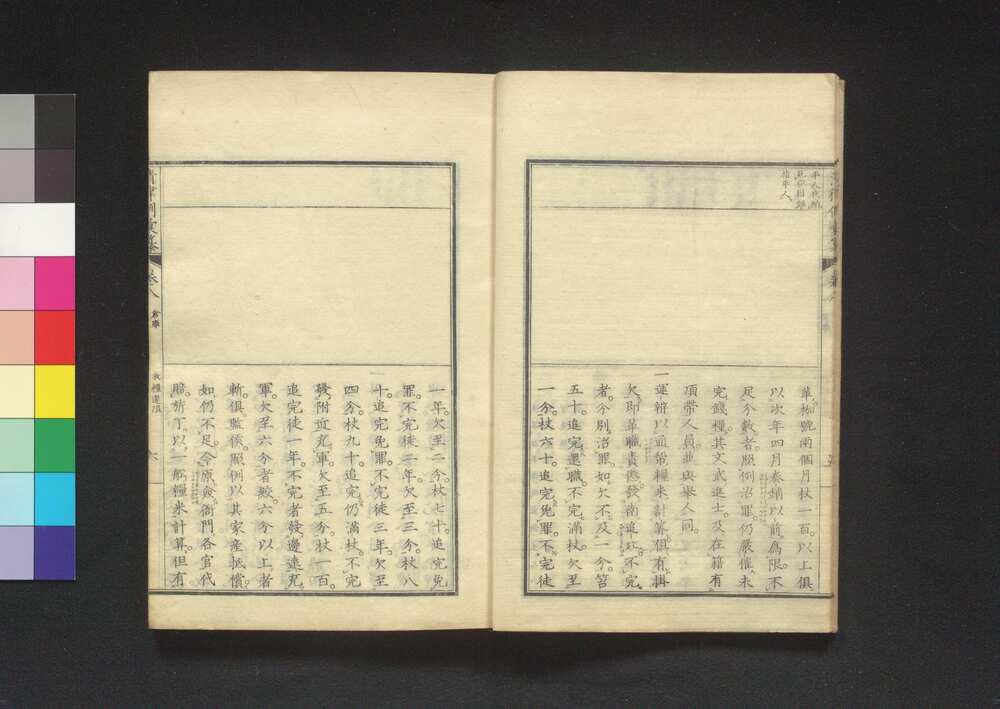 革枷號兩個月杖一百以上俱
以次年四月奏銷以前為限不
足分數者照例治罪仍嚴催未
完錢糧其文武進士及在籍有
項帶人員並與舉人同
一運辨以通幫糧米計算俱有掛
欠即革職責懲發南追比不完
者分別治罪如欠不及一分笞
五十追完還職不完滿杖欠至
一分杖六十追完免罪不完徒
一年欠至二分杖七十追完免
罪不完徒二年欠至三分杖八
十追完免罪不完徒三年欠至
四分杖九十追完仍滿杖不完
發附近充軍欠至五分杖一百
追完徒一年不完者發邊遠充
軍欠至六分者數六分以上者
斬俱監候照例以其家產抵償
如仍不足令原僉衙門各官代
賠旂丁以一船糧米計算但有
清律例彙纂
卷八
倉庫
收糧違限
六